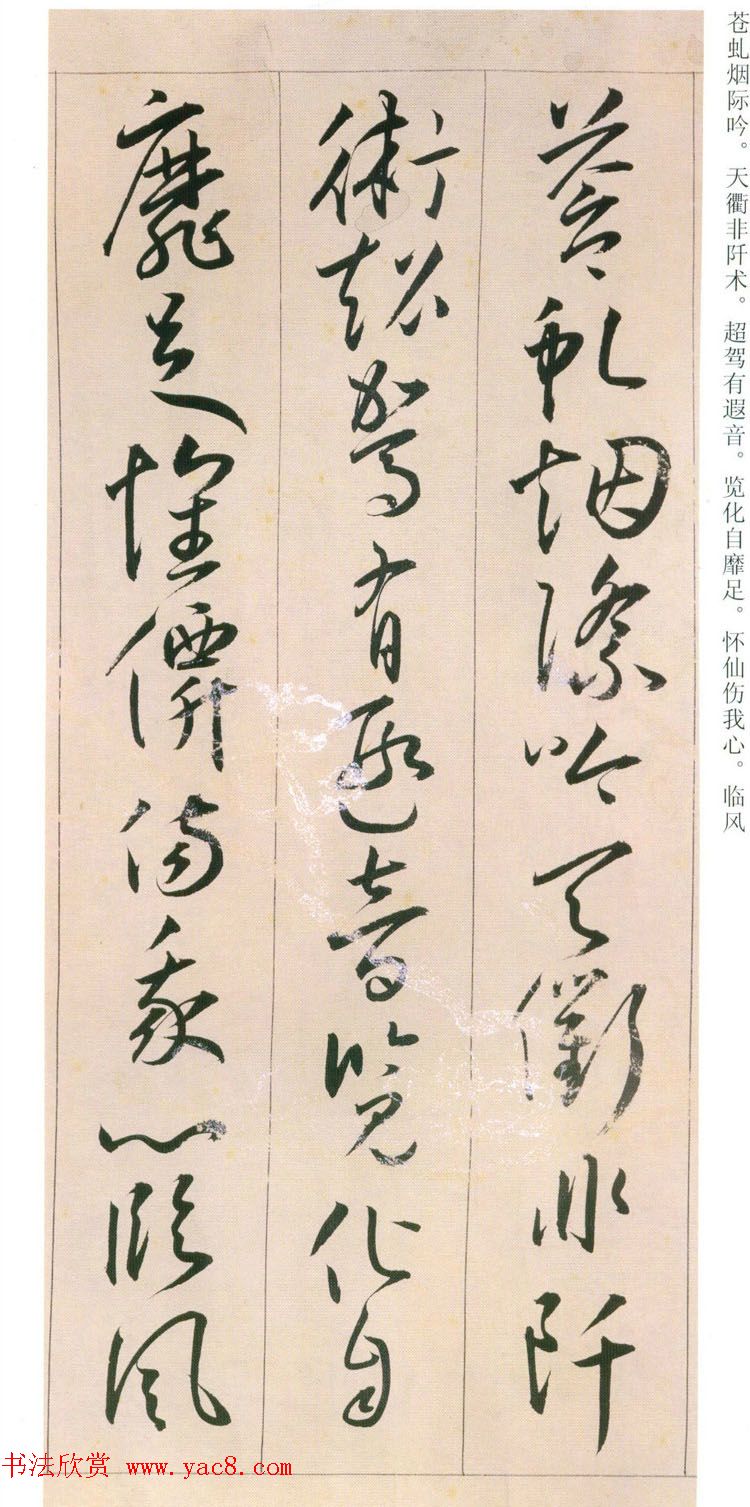 苍虬烟际吟。天衢非阡术。超驾有遐音。览化自靡足。怀仙伤我心。临风
蒼虬烟際吟天衢非阡
術超駕有遐音覽化自
靡足懷僊傷我心臨風
书法欣赏 www.yac8.com